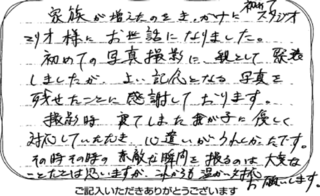 家族が増えたのをきっかけに初めてスタジオ
マリオ様にお世話になりました。
初めての写真撮影に親として緊張
しましたが、よい記念となる写真を
残せたことに感謝しております。
撮影時、寝てしまった我が子に優しく
対応していただき、心遣いがうれしかったです。
その時その時の素敵な瞬間を撮るのは大変な
ことだとは思いますが、これからも温かい対応
お願いします。
ご記入いただきありがとうございます